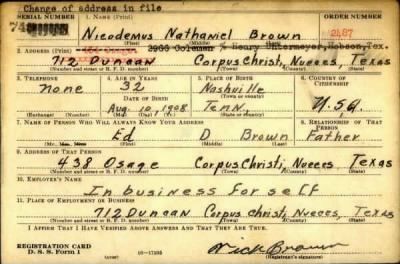 Change of address in file
SERIAL NUMBER 1. NAME (Print) ORDER NUMBER
Nicodemus Nathaniel Brown 2487
(First) (Middle) (Last)
2. ADDRESS (Print) 2966 Coleman % Henry Untermeyer, Robson, Tex.
712 Duncan Corpus Christi, Nueces, Texas
(Number and street or R. F. D. number) (Town) (County) (State)
3. TELEPHONE 4. AGE IN YEARS 5. PLACE OF BIRTH 6. COUNTRY OF CITIZENSHIP
none 32 Nashville
DATE OF BIRTH (Town or county)
Aug. 10, 1908 Tenn. U.S.A.
(Exchange) (Number) (Mo.) (Day) (Yr.) (State or country)
7. NAME OF PERSON WHO WILL ALWAYS KNOW YOUR ADDRESS 8. RELATIONSHIP OF THAT PERSON
Ed D Brown Father
(Mr., Mrs., Miss) (First) (Middle) (Last)
9. ADDRESS OF THAT PERSON
438 Osage Corpus Christi, Nueces, Texas
(Number and street or R. F. D. number) (Town) (County) (State)
10. EMPLOYER'S NAME
In business for self
11. PLACE OF EMPLOYMENT OR BUSINESS
712 Duncan Corpus Christi, Nueces, Texas
(Number and street or R. F. D. number) (Town) (County) (State)
I AFFIRM THAT I HAVE VERIFIED ABOVE ANSWERS AND THAT THEY ARE TRUE.
REGISTRATION CARD
D. S. S. Form 1 16-17105 Nick Brown
(Registrant's signature)